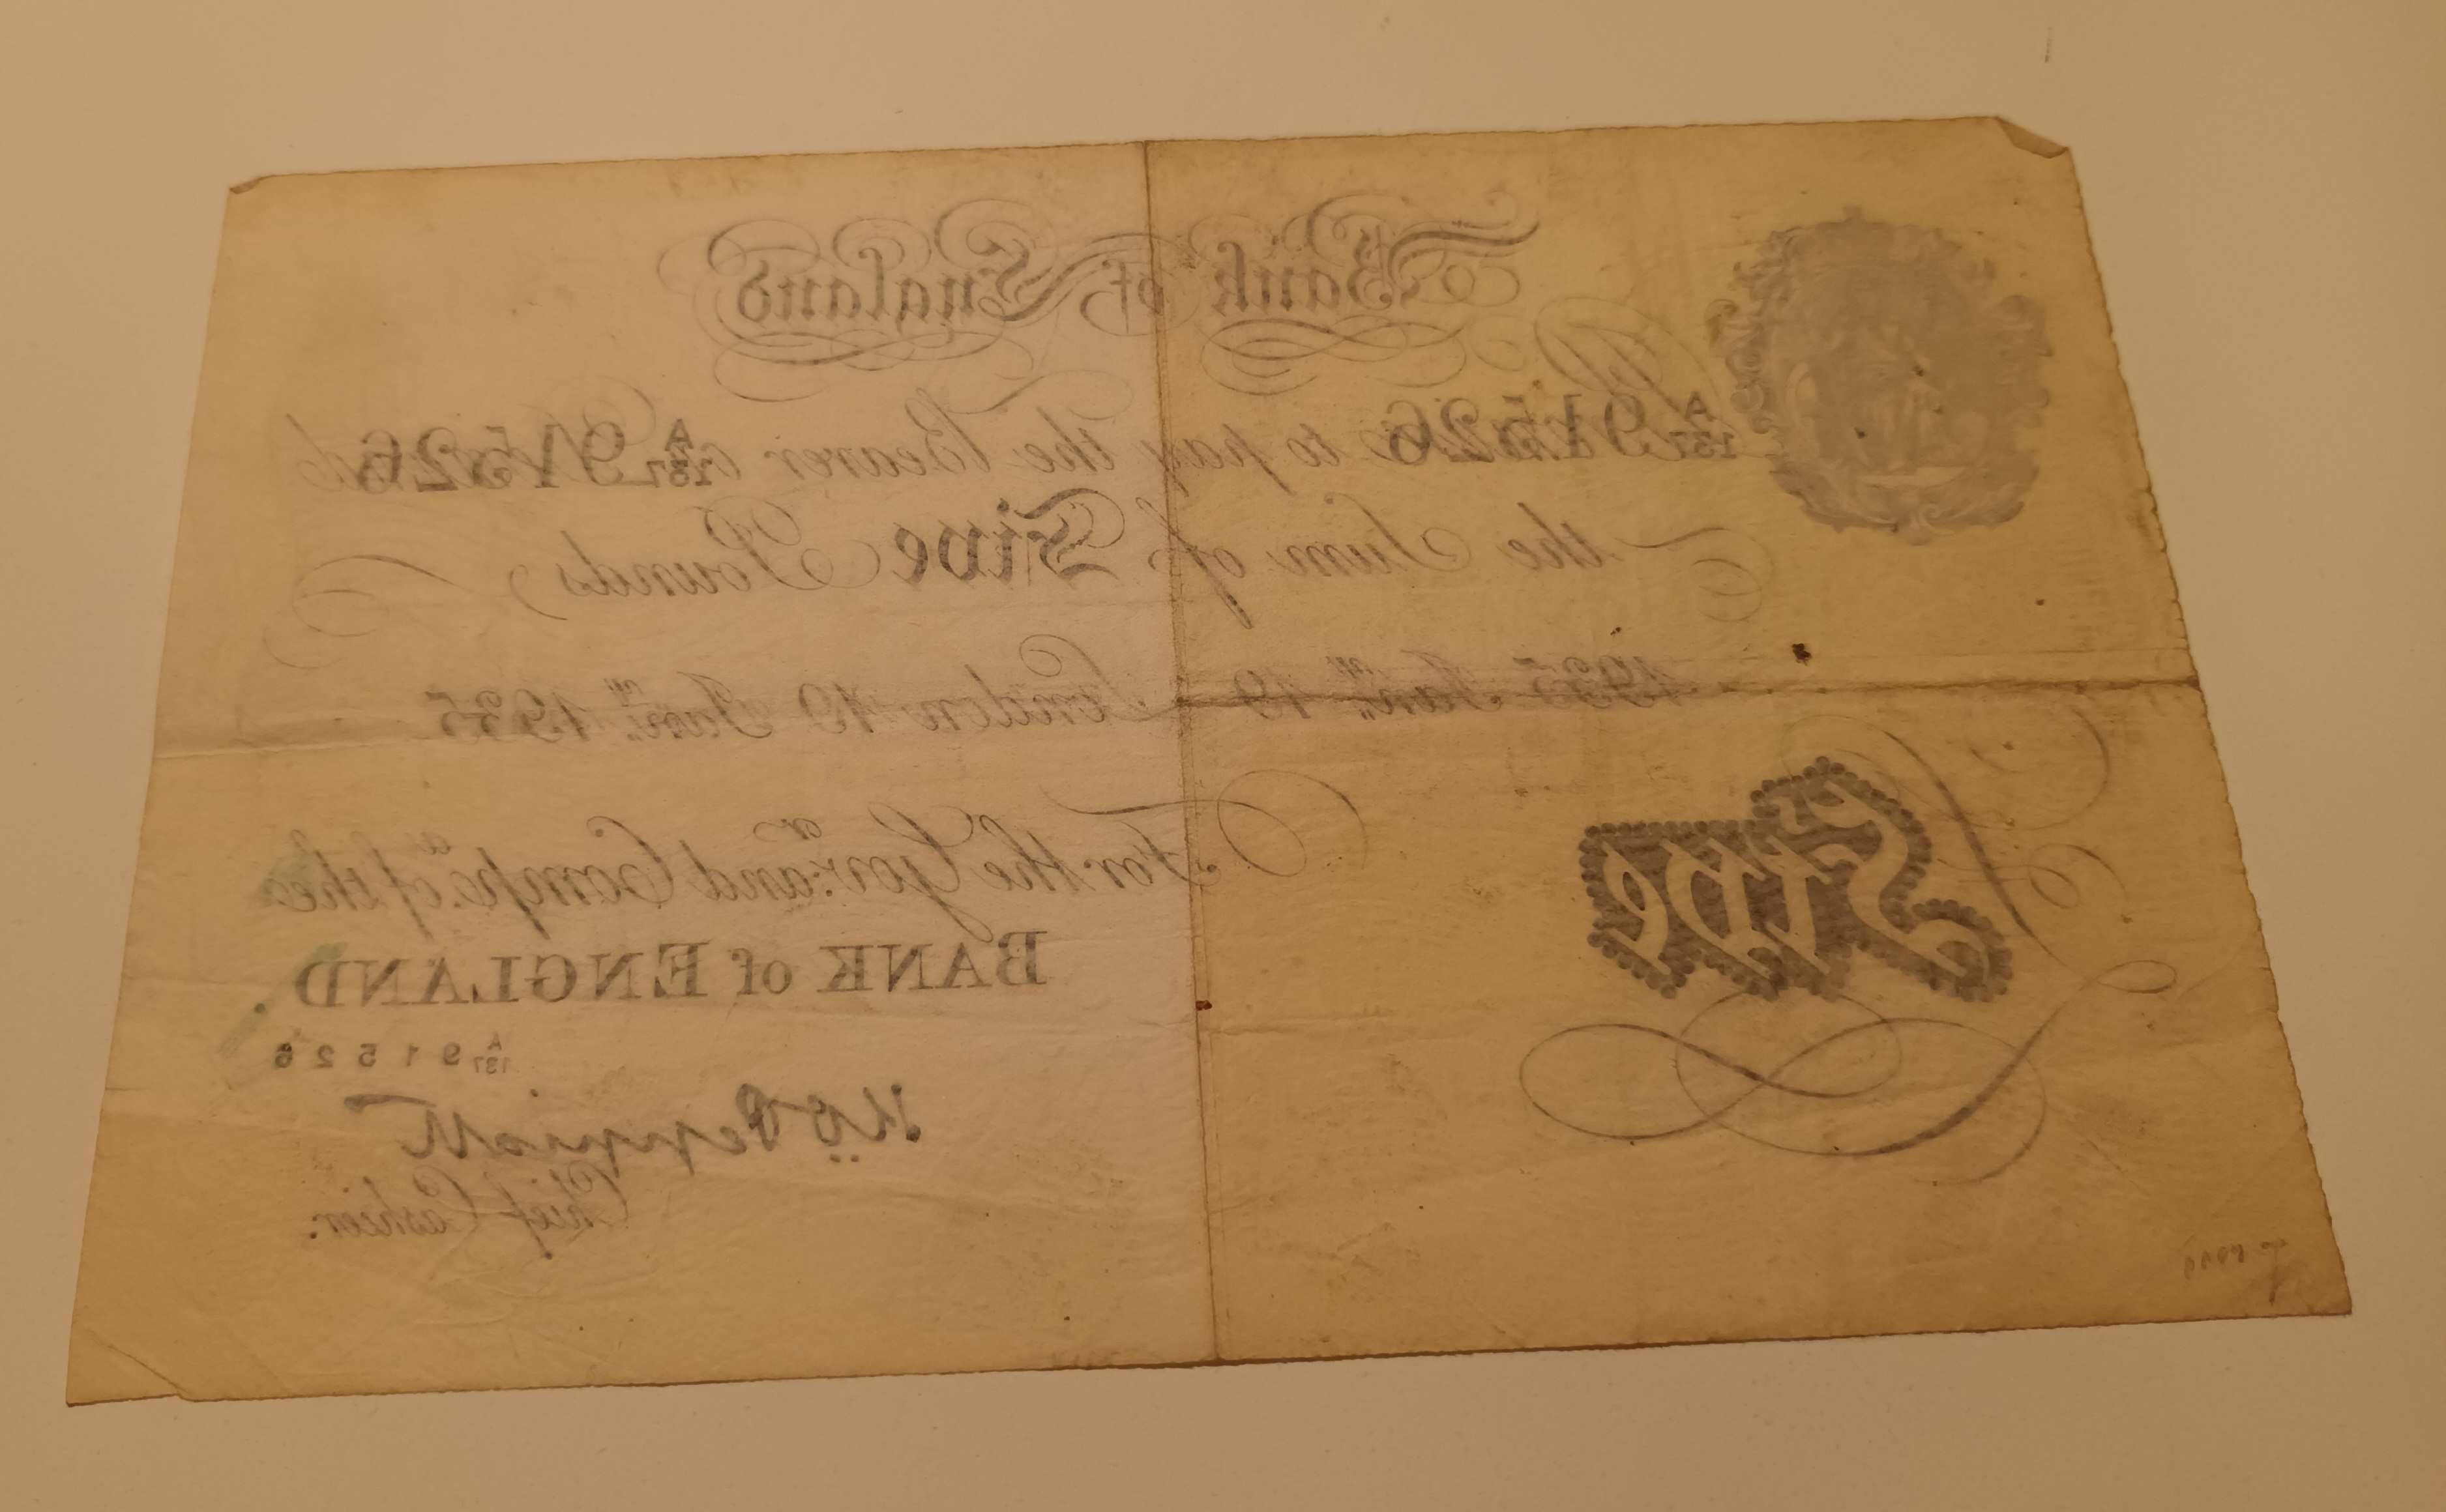 Bank of England
A/137 91526 to pay the Bearer on A/137 91526
the Sum of Five Pounds
1935 Jan.ry 19 London 19 Jan.ry 1935
For the Gov.r and Comp.a of the
BANK of ENGLAND.
A/137 91526
Five
Chief Cashier.